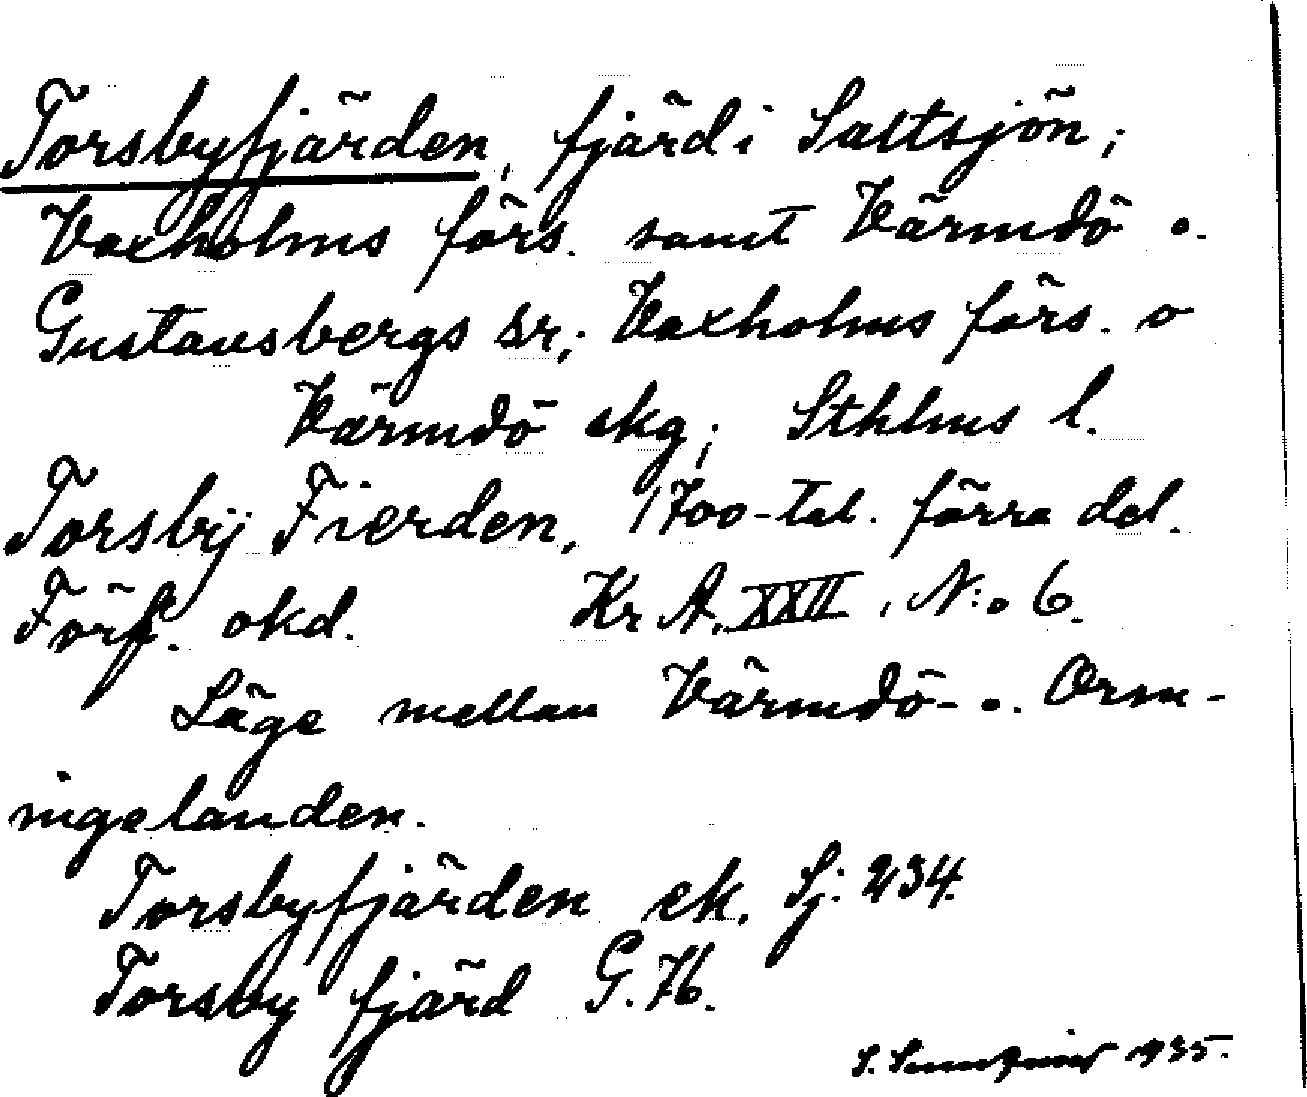 Torsbyfjärden, fjärd i Saltsjön;
Vaxholms förs. samt Värmdö o.
Gustavsbergs sr; Vaxholms förs. o
Värmdö skg; Sthlms l.
Torsbÿ Fierden, 1700-tal. förra del.
Förf. okd. Kr A, XXII, N:o 6.
Läge mellan Värmdö- o. Orm-
ingelanden.
Torsbyfjärden ek. Sj. 234.
Torsby fjärd G. 76.
S. 1935.